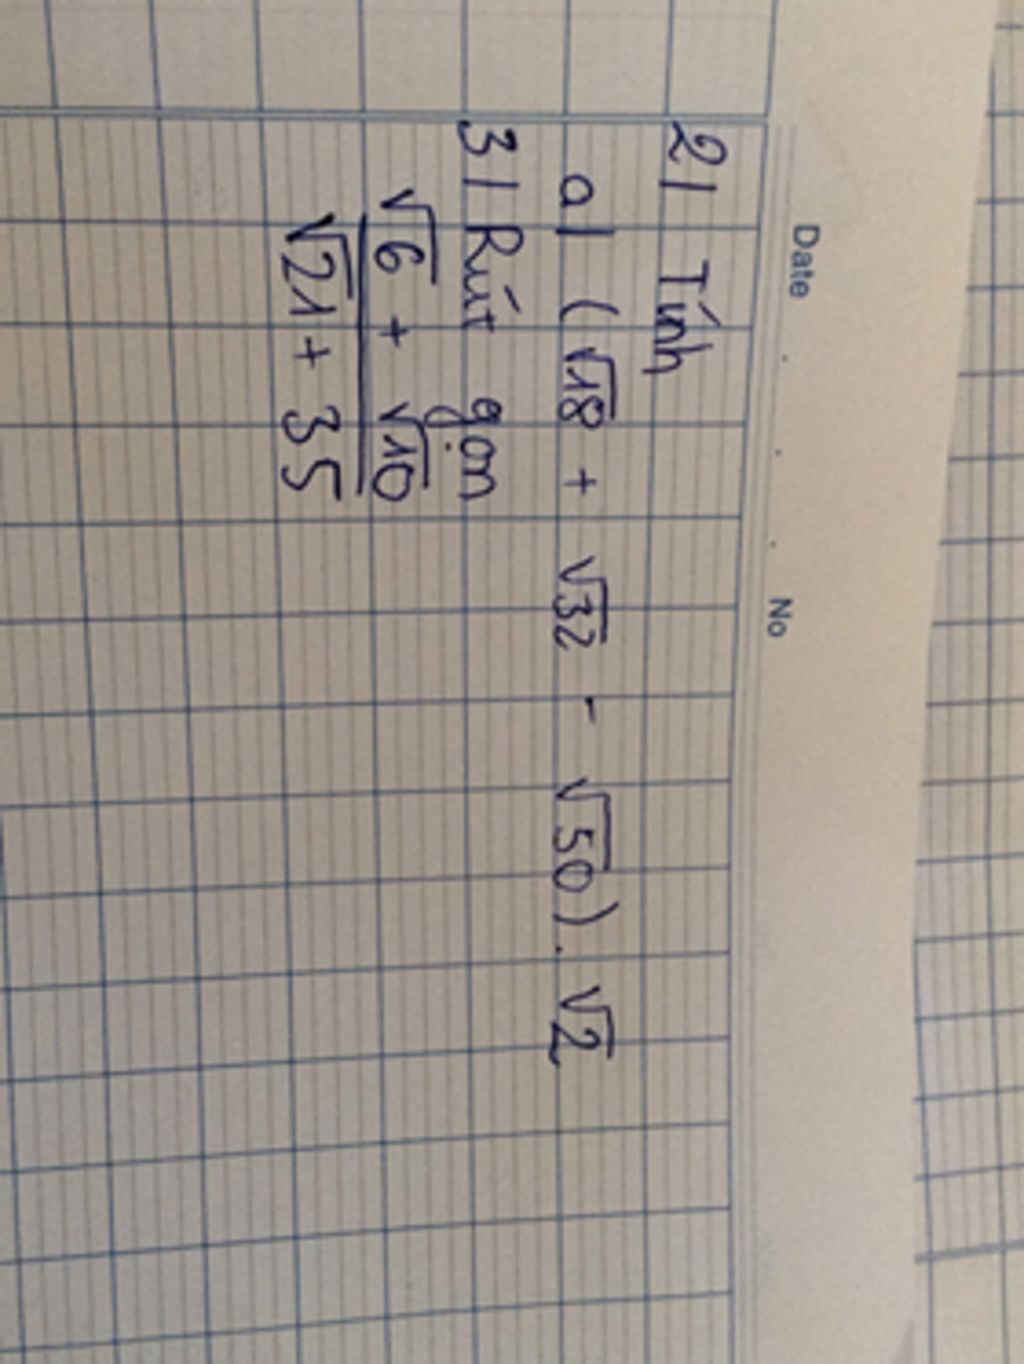 Date . . . No
2/ Tính
a/ (√18 + √32 - √50). √2
3/ Rút gọn
√6 + √10
√21 + 35